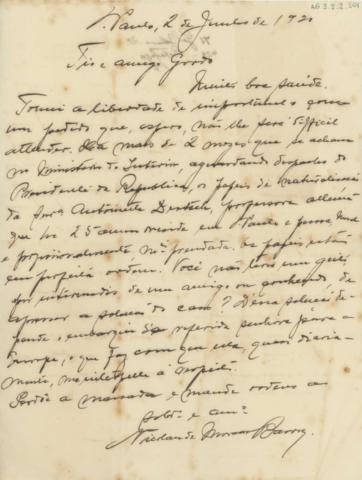 AG 3.2.2.201
S. Paulo, 2 de Junho de 1920
Tio e amigo Gordo
Muita boa saúde.
Tomei a liberdade de importunal-o com
um pedido que, espero, não lhe será difficil
attender. Ha mais de 2 mezes que se acham
no Ministerio do Interior, aguardando despacho do
Presidente da Republica, os papeis de naturalisação
da Snra Antoinette, professora allemã
que ha 25 annos reside em S. Paulo e
e proporcionalmente não. Os papeis estão
em perfeita ordem. Você não teria um geito
por intermedio de um amigo ou conhecido de
apressar a solução do caso? Dessa solução de-
pende o embarque da referida senhora para a
Europa, o que faz com que ella, quasi diaria-
mente, me a respeito.
Perdôe a massada e mande ordens ao
sobr.º e am.º
Nicolau de Moraes Barros.